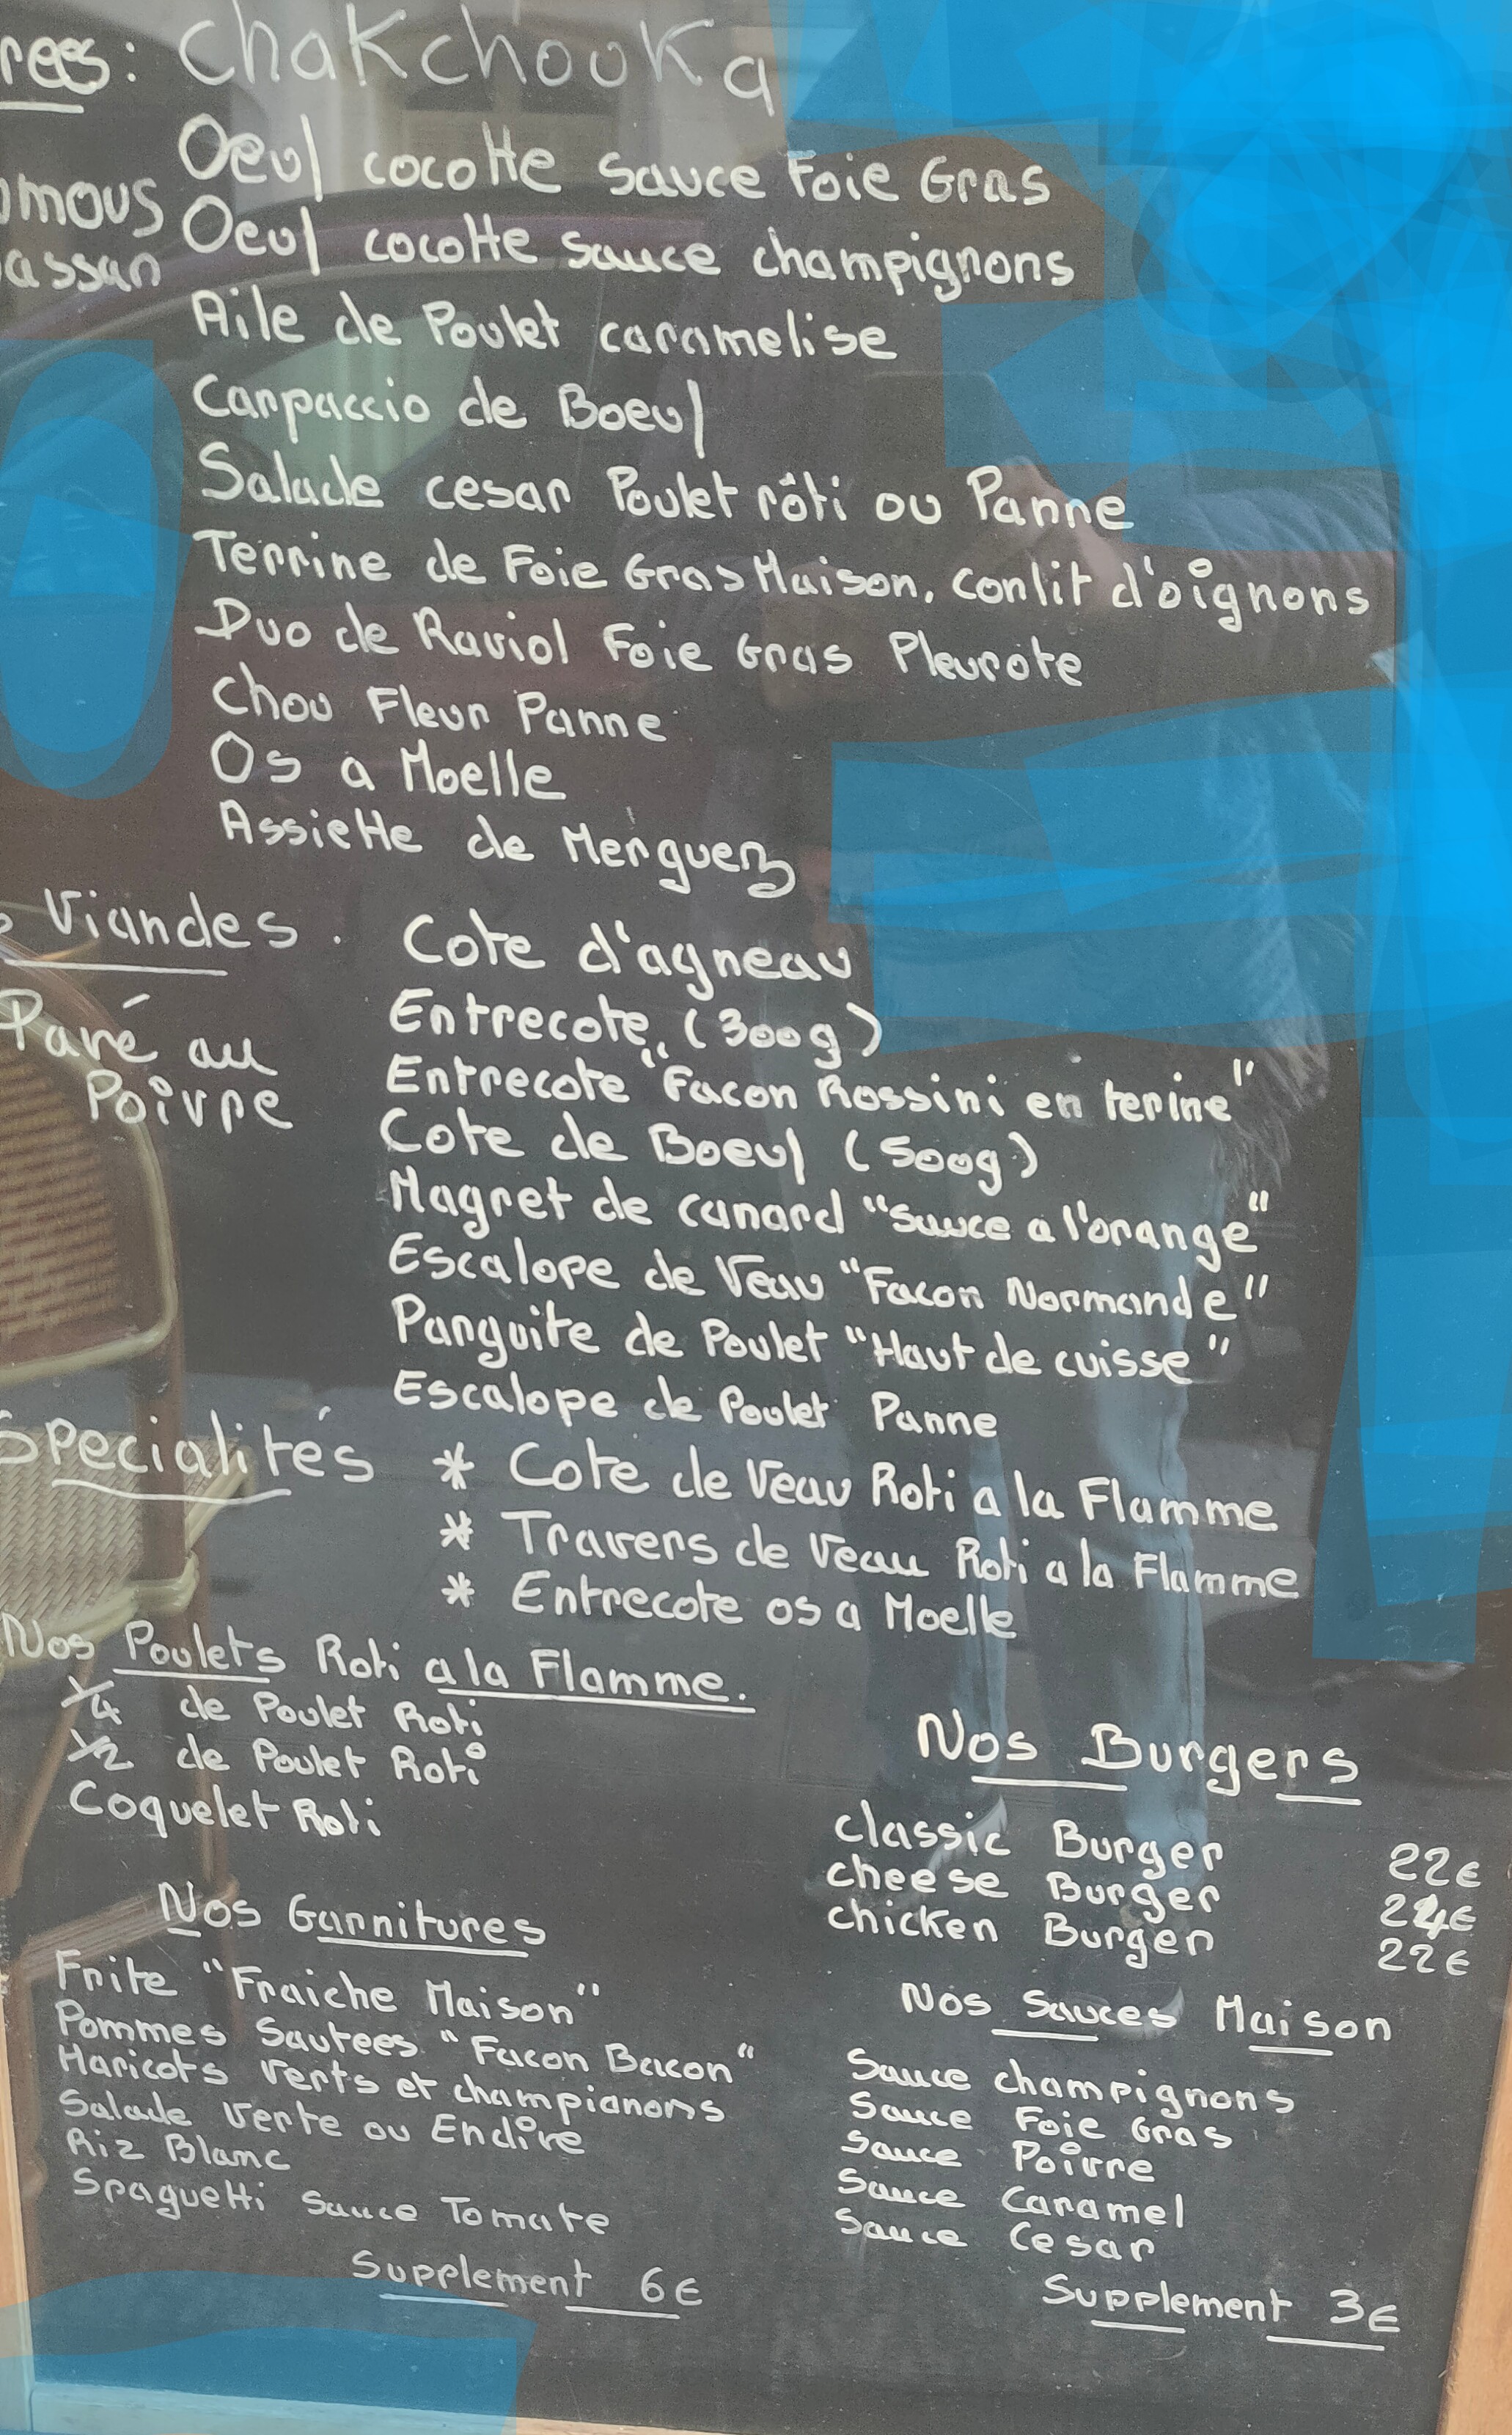 rees: ChaKchouKa
Oeuf cocotte sauce Foie Gras
omous
Oeuf cocotte sauce champignons
assan
Aile de Poulet caramelise
Carpaccio de Boeuf
Salade cesar Poulet rôti ou Panne
Terrine de Foie Gras Maison, confit d'oignons
Duo de Raviol Foie Gras Pleurote
Chou Fleur Panne
Os a Moelle
Assiette de Merguez
Viandes. Cote d'agneau
Entrecote (300g)
Pavé au
Poivre
Entrecote "Facon Rossini en terine"
Cote de Boeuf (500g)
Magret de canard "sauce a l'orange"
Escalope de Veau "Facon Normande"
Panguite de Poulet "Haut de cuisse"
Escalope de Poulet Panne
Specialités * Cote de Veau Roti a la Flamme
* Travers de Veau Roti a la Flamme
* Entrecote os a Moelle
Nos Poulets Roti a la Flamme.
1/4 de Poulet Roti
1/2 de Poulet Roti
Coquelet Roti
Nos Burgers
classic Burger 22€
cheese Burger 24€
chicken Burger 22€
Nos Garnitures
Frite "Fraiche Maison"
Pommes Sautees "Facon Bacon"
Haricots Verts et champianons
Salade Verte ou Endive
Riz Blanc
Spaguetti Sauce Tomate
Supplement 6€
Nos Sauces Maison
Sauce champignons
Sauce Foie Gras
Sauce Poivre
Sauce Caramel
Sauce Cesar
Supplement 3€